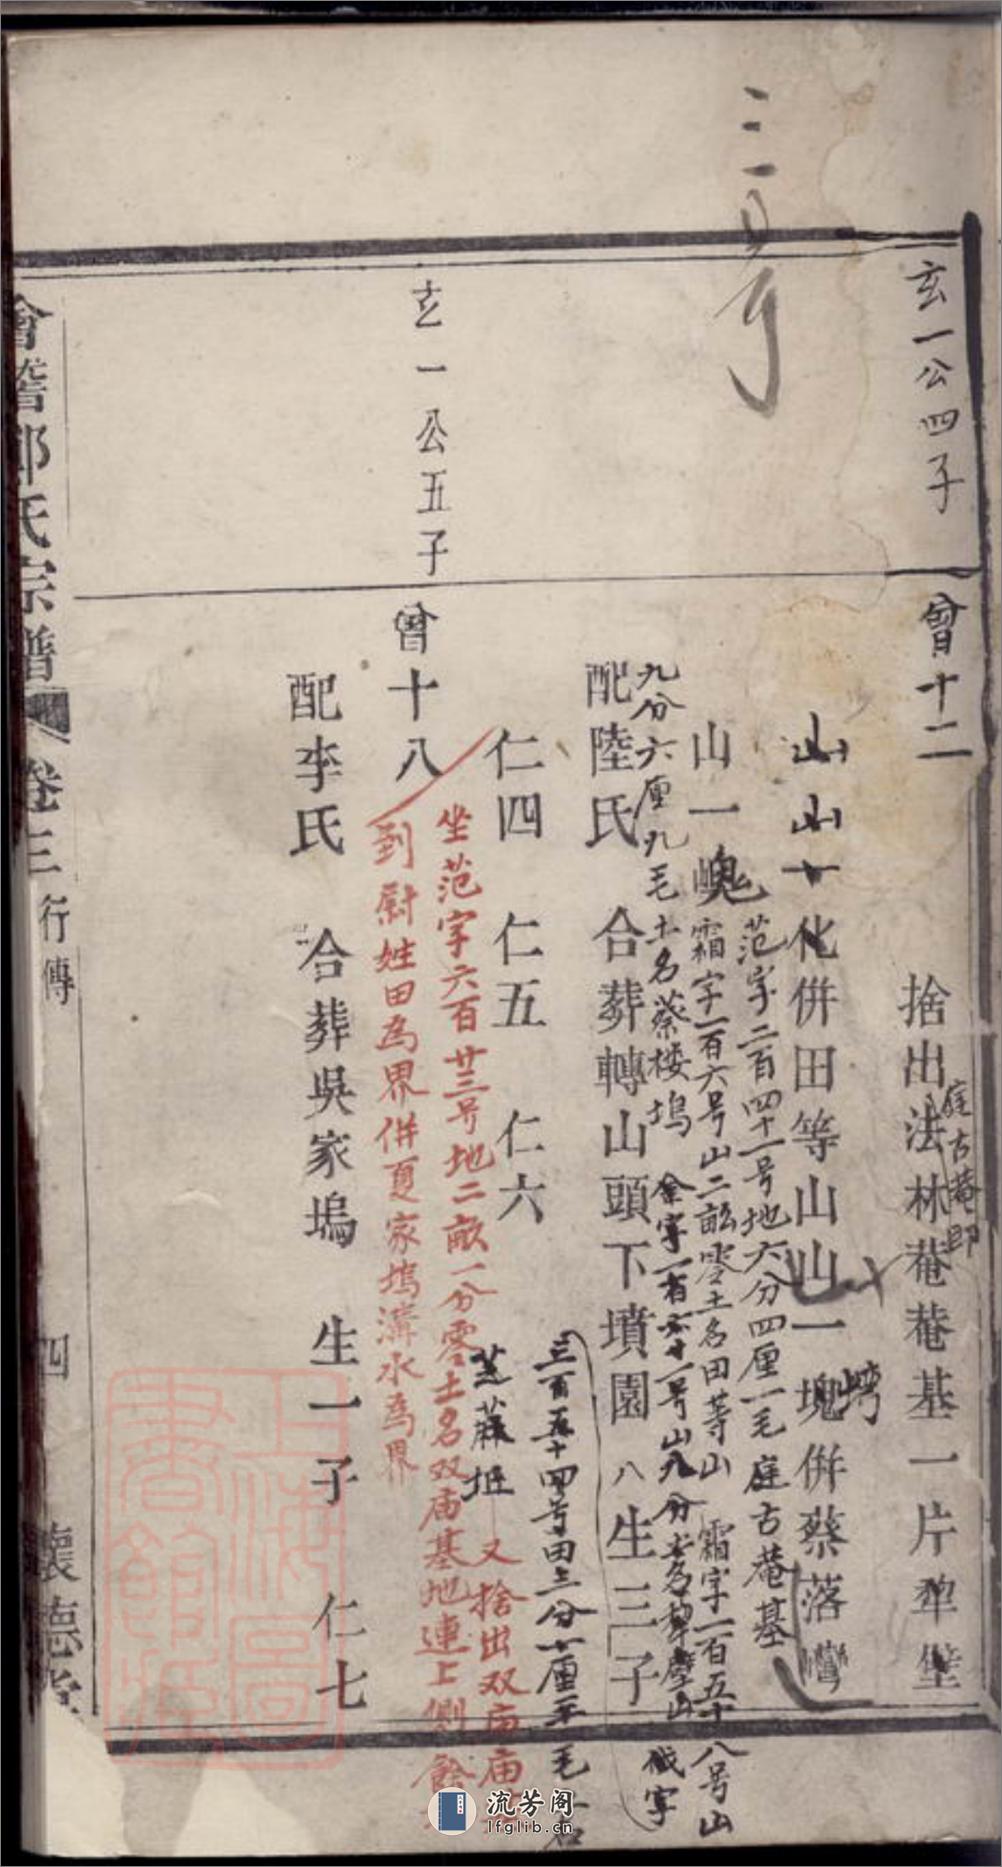 三
玄一公四子
曾十二
捨出法林菴菴基一片犂壁
庭古菴即
山山十化併田等山山一塊併蔡落灣
灣
范字二百四十一号地六分四厘一毛庭古菴基
山一塊
霜字一百六号山二畝零土名田等山 霜字一百五十八号山
九分六厘九毛土名蔡楼塢 金字一百六十一号山九分土名犂壁山 俄字
配陸氏 合葬轉山頭下墳園 生三子
三百五十四号田三分六厘三毛土名
芝蔴坵
仁四 仁五 仁六
又捨出双庙庙基
玄一公五子
曾十八
坐范字六百廿三号地二畝一分零土名双庙基地連上側餘
到尉姓田為界併夏家塢溝水為界
配李氏 合葬吳家塢 生一子 仁七
會稽郎氏宗譜 卷三 行傳 四 懷德堂
上海圖書館藏
流芳阁
lfglib.cn